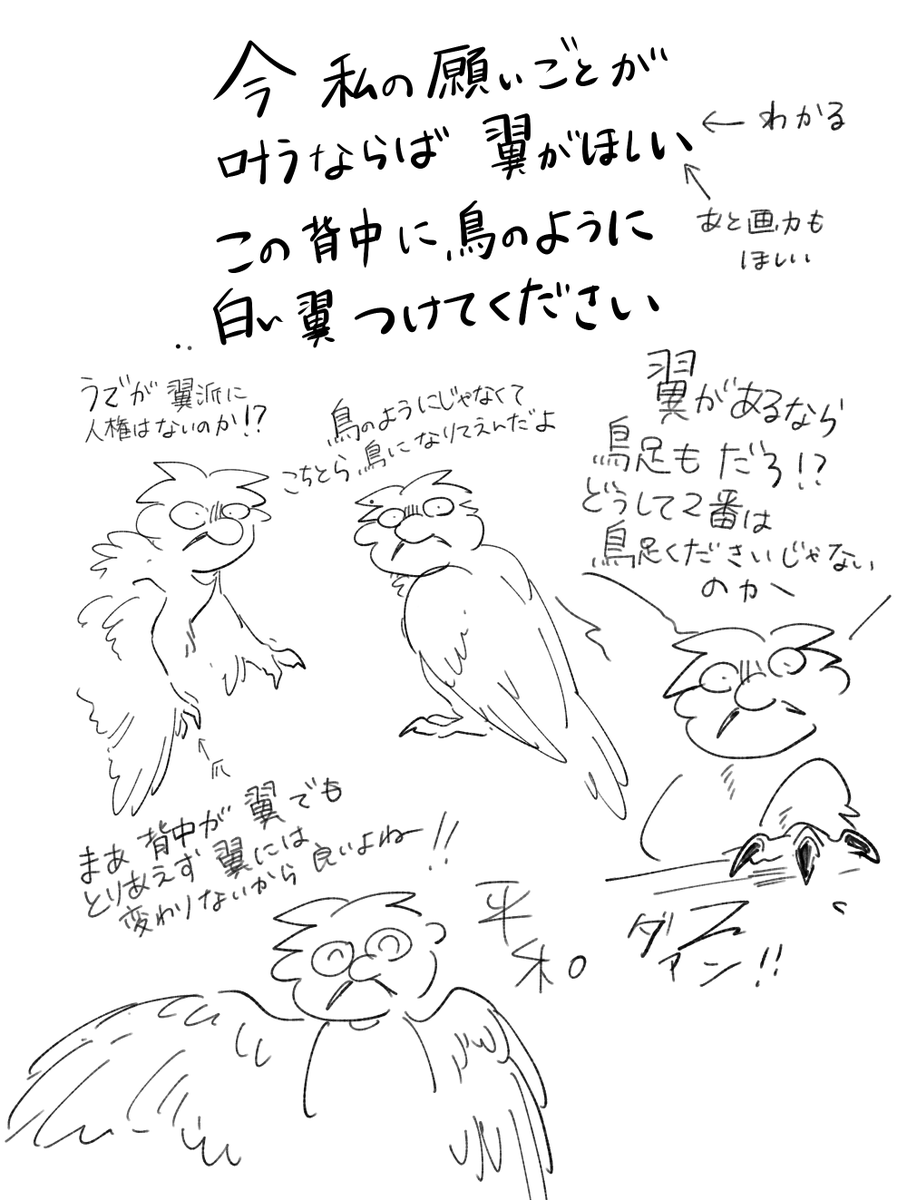 今 私の願いごとが
叶うならば 翼がほしい
この背中に鳥のように
白い翼 つけてください
←わかる
あと画力も
ほしい
うでが翼派に
人権はないのか!?
鳥のようにじゃなくて
こちとら鳥になりてえんだよ
翼があるなら
鳥足もだろ!?
どうして2番は
鳥足くださいじゃない
のカヽ
爪
まあ背中が翼でも
とりあえず翼には
変わりないから良いよねー!!
平
和
ダァンッ!!